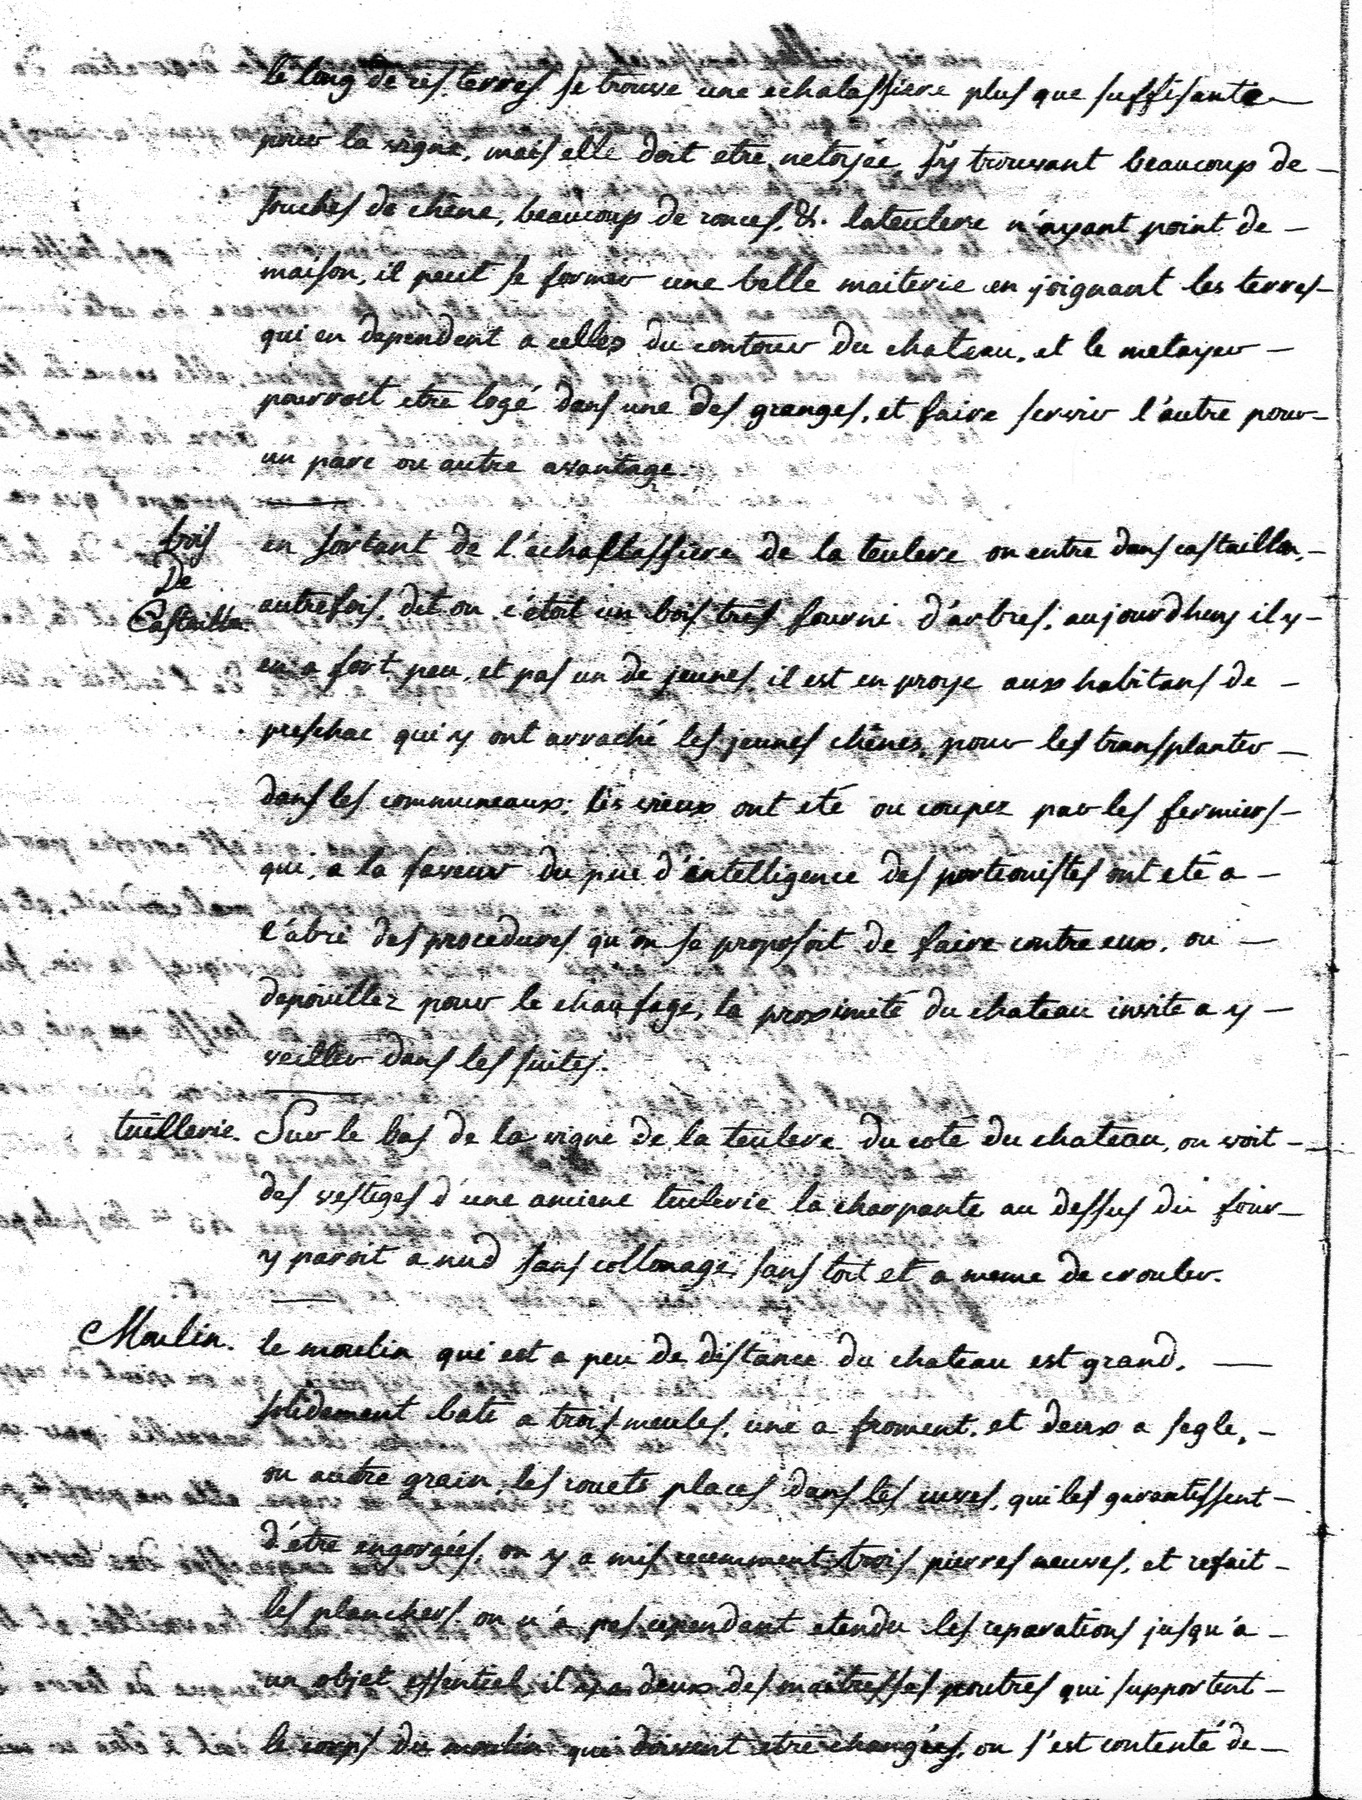 le long de ces terres se trouve une echalassiere plus que suffisante
pour la vigne, mais elle doit etre netoyée, s'y trouvant beaucoup de
souches de chêne, beaucoup de ronces, &. lateulere n'ayant point de
maison, il peut se former une belle maiterie en joignant les terres
qui en dependent a celles du contour du chateau, et le metayer
pourroit etre logé dans une des granges, et faire servir l'autre pour
un parc ou autre avantage.
bois
De
Castaillon.
en sortant de l'echallassiere de la teulere on entre dans castaillon,
autrefois, dit on c'étoit un bois très fourni d'arbres, aujourdhuy il y
en a fort peu, et pas un de jeunes il est en proye aux habitans de
preschac qui y ont arraché les jeunes chênes, pour les transplanter
dans les communeaux; les vieux ont eté ou coupez par les fermiers
qui, a la faveur du peu d'intelligence des portionistes ont eté a
l'abri des procedures qu'on se proposoit de faire contre eux, ou
depouillez pour le chaufage, la proximité du chateau invite a y
veiller dans les suites.
tuillerie.
Sur le bas de la vigne de la teulere du coté du chateau, on voit
des vestiges d'une anciene tuilerie la charpante au dessus du four
y paroit a nud sans collonage, sans toit et a meme de crouler.
Moulin.
le moulin qui est a peu de distance du chateau est grand,
solidement bati a trois meules, une a froment, et deux a segle,
ou autre grain, les rouets places dans les cuves, qui les garantissent
d'étre engorgées, on y a mis recemment trois pierres neuves, et refait
les planchers on n'a pas cependant etendu les reparations jusqu'à
un objet essentiel il y a deux des maitresses poutres qui supportent
le corps du moulin qui doivent etre changées, on s'est contenté de